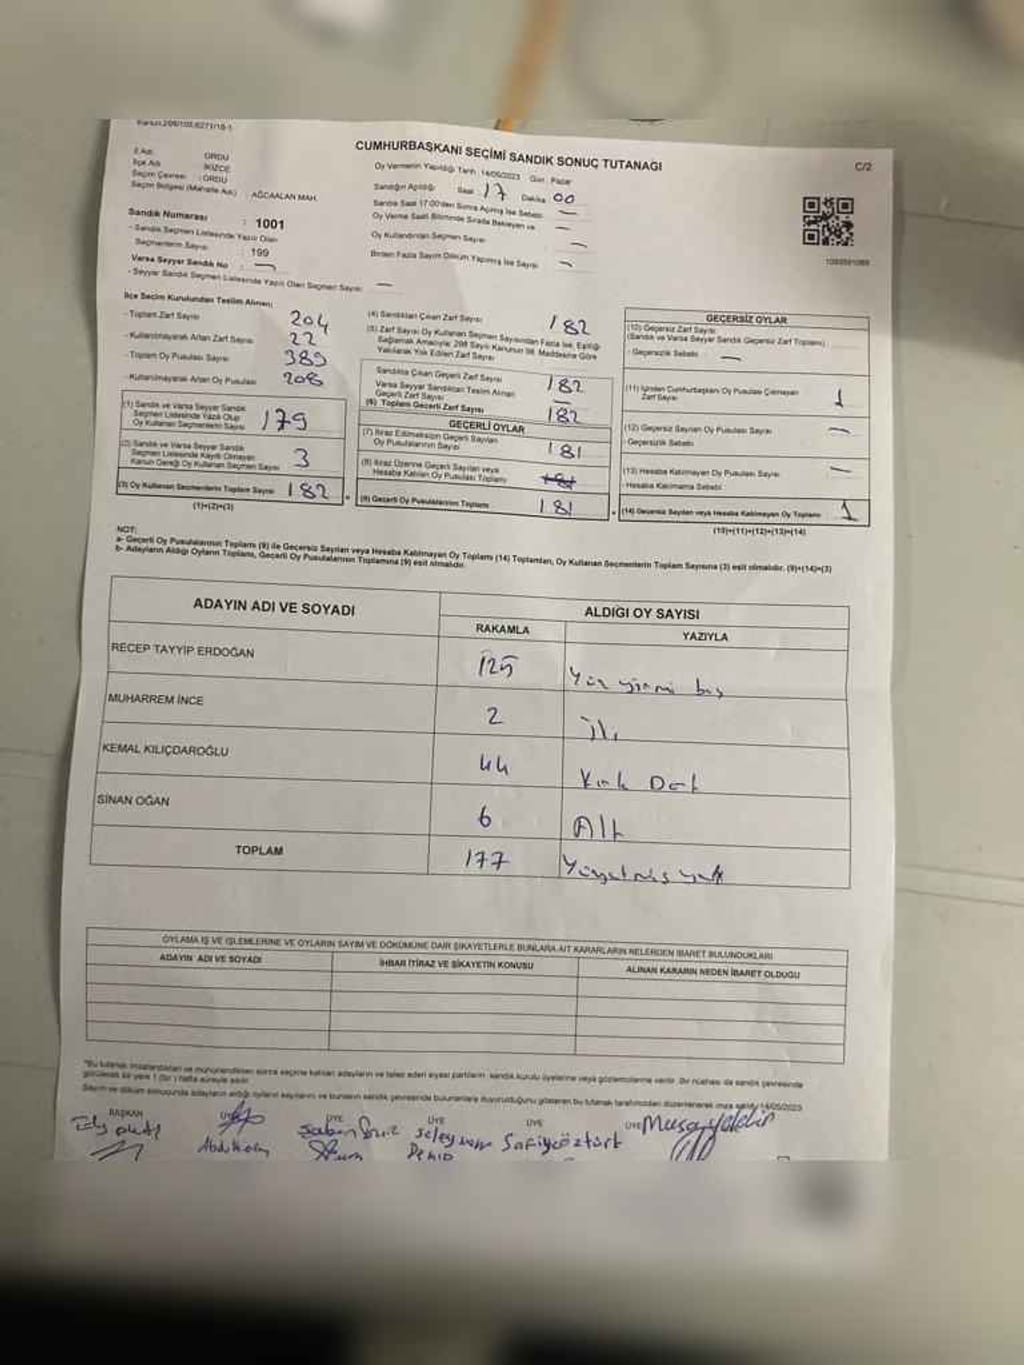 CUMHURBAŞKANI SEÇİMİ SANDIK SONUÇ TUTANAĞI
C/2
İl Adı : ORDU
İlçe Adı : İKİZCE
Seçim Çevresi : ORDU
Seçim Bölgesi (Mahalle Adı) : AĞCAALAN MAH.
Sandık Numarası : 1001
- Sandık Seçmen Listesinde Yazılı Olan
Seçmenlerin Sayısı : 199
Varsa Seyyar Sandık No : —
- Seyyar Sandık Seçmen Listesinde Yazılı Olan Seçmen Sayısı : —
Oy Vermenin Yapıldığı Tarih : 14/05/2023 Gün : Pazar
Sandığın Açıldığı Saat : 17 Dakika 00
Sandık Saat 17:00'den Sonra Açılmış İse Sebebi : —
Oy Verme Saati Bitiminde Sırada Bekleyen ve —
Oy Kullandırılan Seçmen Sayısı : —
Birden Fazla Sayım Döküm Yapılmış İse Sayısı : —
İlçe Seçim Kurulundan Teslim Alınan;
- Toplam Zarf Sayısı 204
- Kullanılmayarak Artan Zarf Sayısı 22
- Toplam Oy Pusulası Sayısı 389
- Kullanılmayarak Artan Oy Pusulası 208
(1) Sandık ve Varsa Seyyar Sandık
Seçmen Listesinde Yazılı Olup
Oy Kullanan Seçmenlerin Sayısı 179
(2) Sandık ve Varsa Seyyar Sandık
Seçmen Listesinde Kayıtlı Olmayan
Kanun Gereği Oy Kullanan Seçmen Sayısı 3
(3) Oy Kullanan Seçmenlerin Toplam Sayısı 182
(1)+(2)=(3)
(4) Sandıktan Çıkan Zarf Sayısı 182
(5) Zarf Sayısı Oy Kullanan Seçmen Sayısından Fazla İse, Eşitliği
Sağlamak Amacıyla; 298 Sayılı Kanunun 98. Maddesine Göre
Yakılarak Yok Edilen Zarf Sayısı
Sandıkta Çıkan Geçerli Zarf Sayısı 182
Varsa Seyyar Sandıktan Teslim Alınan
Geçerli Zarf Sayısı —
(6) Toplam Geçerli Zarf Sayısı 182
GEÇERLİ OYLAR
(7) İtiraz Edilmeksizin Geçerli Sayılan
Oy Pusulalarının Sayısı 181
(8) İtiraz Üzerine Geçerli Sayılan veya
Hesaba Katılan Oy Pusulası Toplamı 181
(9) Geçerli Oy Pusulalarının Toplamı 181
GEÇERSİZ OYLAR
(10) Geçersiz Zarf Sayısı
(Sandık ve Varsa Seyyar Sandık Geçersiz Zarf Toplamı) :
- Geçersizlik Sebebi : —
(11) İçinden Cumhurbaşkanı Oy Pusulası Çıkmayan
Zarf Sayısı 1
(12) Geçersiz Sayılan Oy Pusulası Sayısı —
- Geçersizlik Sebebi
(13) Hesaba Katılmayan Oy Pusulası Sayısı —
- Hesaba Katılmama Sebebi
(14) Geçersiz Sayılan veya Hesaba Katılmayan Oy Toplamı 1
(10)+(11)+(12)+(13)=(14)
NOT:
a- Geçerli Oy Pusulalarının Toplamı (9) ile Geçersiz Sayılan veya Hesaba Katılmayan Oy Toplamı (14) Toplamları, Oy Kullanan Seçmenlerin Toplam Sayısına (3) eşit olmalıdır. (9)+(14)=(3)
b- Adayların Aldığı Oyların Toplamı, Geçerli Oy Pusulalarının Toplamına (9) eşit olmalıdır.
ADAYIN ADI VE SOYADI
ALDIĞI OY SAYISI
RAKAMLA YAZIYLA
RECEP TAYYİP ERDOĞAN 125 Yüz yirmi beş
MUHARREM İNCE 2 İki
KEMAL KILIÇDAROĞLU 44 Kırk Dört
SİNAN OĞAN 6 Altı
TOPLAM 177
OYLAMA İŞ VE İŞLEMLERİNE VE OYLARIN SAYIM VE DÖKÜMÜNE DAİR ŞİKAYETLERLE BUNLARA AİT KARARLARIN NELERDEN İBARET BULUNDUKLARI
ADAYIN ADI VE SOYADI İHBAR İTİRAZ VE ŞİKAYETİN KONUSU ALINAN KARARIN NEDEN İBARET OLDUĞU
BAŞKAN ÜYE ÜYE ÜYE ÜYE ÜYE
Süleyman Safiye Öztürk Musa